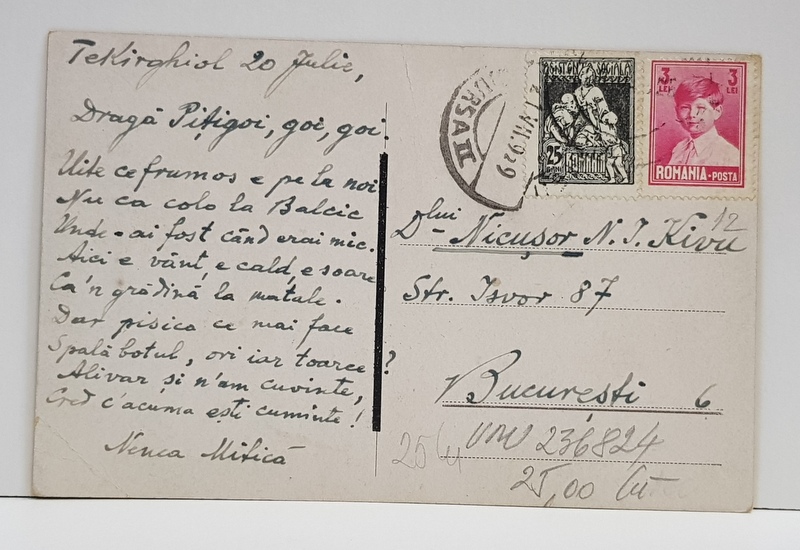 Tekirghiol 20 Julie,
Dragă Pițigoi, goi, goi.
Uite ce frumos e pe la noi
Nu ca colo la Balcic
Unde-ai fost când erai mic.
Aici e vânt, e cald, e soare
Ca'n grădină la matale.
Dar pisica ce mai face
Spală botul, ori iar toarce?
Alivar și n'am cuvinte,
Cred c'acuma ești cuminte!
Nenea Mitică
URSA II
VII.929
ASISTENȚA SOCIALA
25
3 LEI
3 LEI
ROMANIA-POSTA
12
Dlui
Nicușor N. I. Kivu
Str. Isvor 87
București 6
236824
25,00